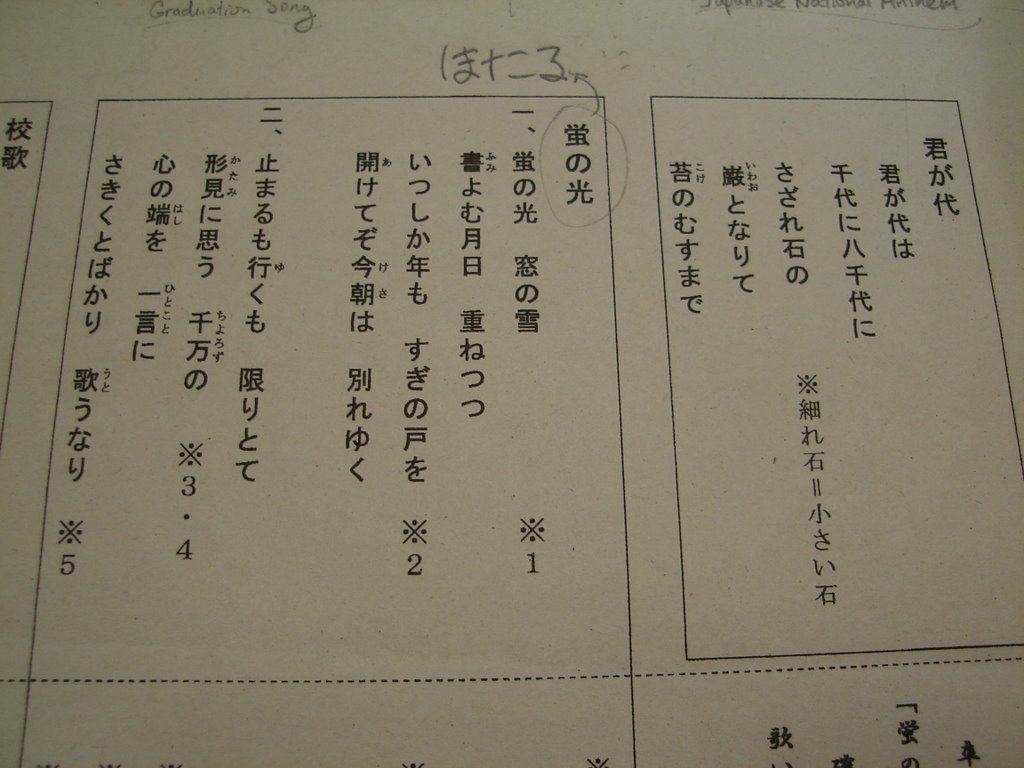 Graduation Song
Japanese National Anthem
ほたる
君が代
君が代は
千代に八千代に
さざれ石の ※細れ石＝小さい石
巌となりて
いわお
苔のむすまで
こけ
蛍の光
一、蛍の光 窓の雪 ※1
書よむ月日 重ねつつ
ふみ
いつしか年も すぎの戸を ※2
開けてぞ今朝は 別れゆく
あ けさ
二、止まるも行くも 限りとて
ゆ
形見に思う 千万の ※3・4
かたみ ちよろず
心の端を 一言に
はし ひとこと
さきくとばかり 歌うなり ※5
うと
校歌
「蛍の
歌い